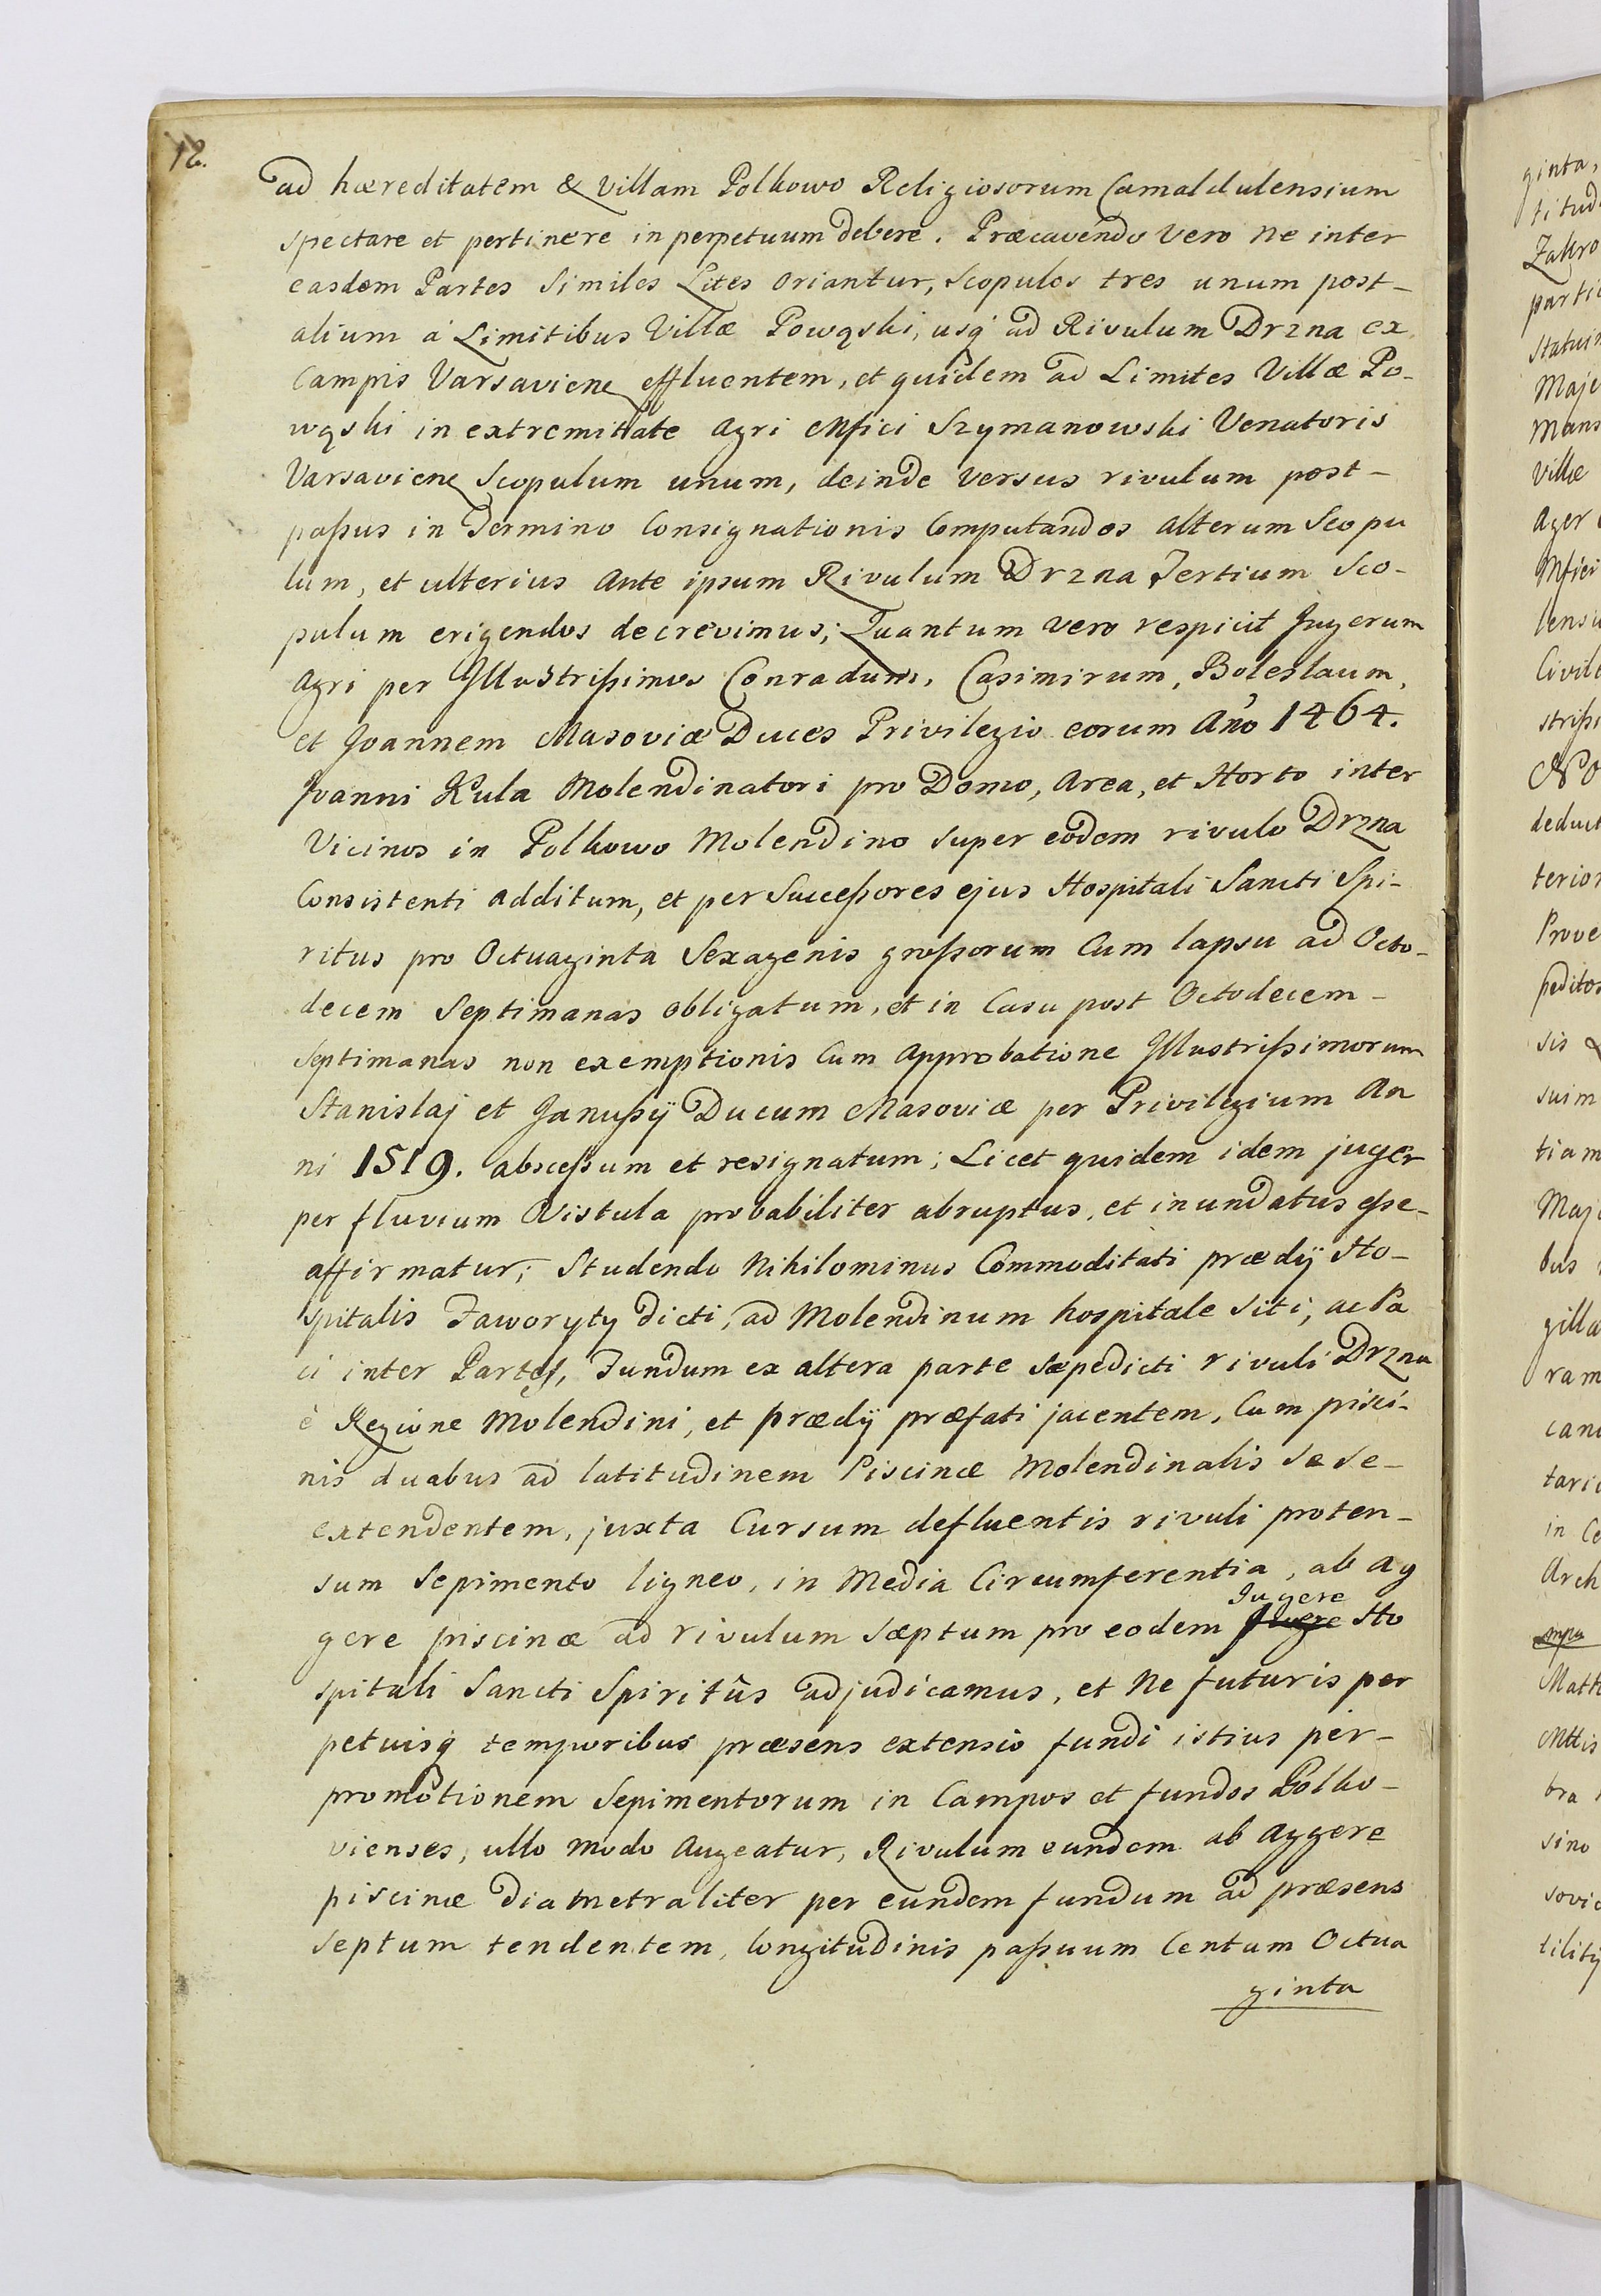 12.
ad hæreditatem & villam Polkowo Religiosorum Camaldulensium
spectare et pertinere in perpetuum debere. Præcavendo vero ne inter
easdem Partes Similes Lites oriantur, Scopulos tres unum post-
alium á Limitibus Villæ Powązki, usq ad Rivulum Drzna ex
Campis Varsavien effluentem, et quidem ad Limites Villæ Po-
wązki in extremitate Agri Mfici Szymanowski Venatoris
Varsavien Scopulum unum, deinde versus rivulum post-
paßus in Termino Consignationis Computandos alterum Scopu
lum, et ulterius ante ipsum Rivulum Drzna Tertium Sco-
pulum erigendos decrevimus; Quantum vero respicit Jugerum
Agri per Jllustrißimos Conradum, Casimirum, Boleslaum,
et Joannem Masoviæ Duces Privilegio eorum Año 1464.
Joanni Kula Molendinatori pro Domo, Area, et Horto inter
Vicinos in Polkowo Molendino super eodem rivulo Drzna
Consistenti additum, et per Succeßores ejus Hospitali Sancti Spi-
ritus pro Octuaginta Sexagenis großorum Cum lapsu ad Octo-
decem Septimanas obligatum, et in Casu post Octodecem-
Septimanas non exemptionis Cum Approbatione Jllustrißimorum
Stanislaj et Janußÿ Ducum Masoviæ per Privilegium An
ni 1519. absceßum et resignatum; Licet quidem idem juger
per fluvium Vistula probabiliter abruptus, et inundatus eße-
affirmatur; Studendo Nihilominus Commoditati prædÿ Ho-
spitalis Faworyty dicti, ad Molendinum hospitale siti, ac Pa
ci inter Partes, Fundum ex altera parte sæpedicti rivuli Drzna
è Regione Molendini, et prædÿ præfati jacentem, Cum pisci-
nis duabus ad latitudinem Piscinæ Molendinalis sese-
extendentem, juxta Cursum defluentis rivuli proten-
sum Sepimento ligneo, in Media Circumferentia, ab ag
gere piscinæ ad rivulum sæptum pro eodem Jugere Ho
spitali Sancti Spiritûs adjudicamus, et Ne futuris per
petuisq temporibus præsens extensio fundi istius per-
promotionem Sepimentorum in Campos et fundos Polko-
vienses, ullo modo Augeatur, Rivulum eundem ab Aggere
piscinæ Diametraliter per eundem fundum ad præsens
Septum tendentem, longitudinis paßuum Centum Octua
ginta
ginta,
Zakro
Maje
Mans
Villæ
Ager
Mfici
Civile
deduct
terior
Prove
peditos
sis &
suim
tiam
gilla
ram
in Ce
Arch
Matt
bra
sino